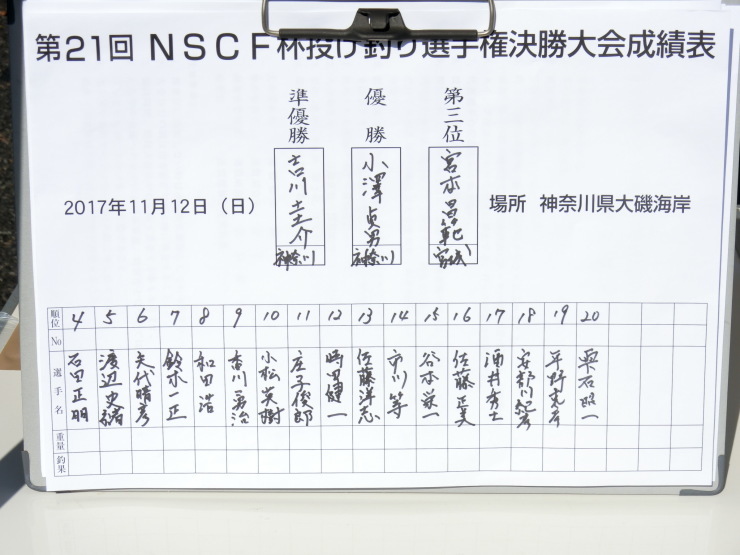 第21回 NSCF杯投げ釣り選手権決勝大会成績表
準優勝
優勝
第三位
吉川圭介
小澤貞男
宮本昌範
神奈川
神奈川
宮城
2017年11月12日（日）
場所 神奈川県大磯海岸
順位 4 5 6 7 8 9 10 11 12 13 14 15 16 17 18 19 20
No
選手名
石田正明
渡辺史緒
矢代晴彦
鈴木一正
和田浩
香川勇治
小松英樹
庄子俊郎
時田健一
佐藤洋志
市川等
谷本栄一
佐藤正美
酒井秀士
安部川
平野
雫石昭一
重量
釣果